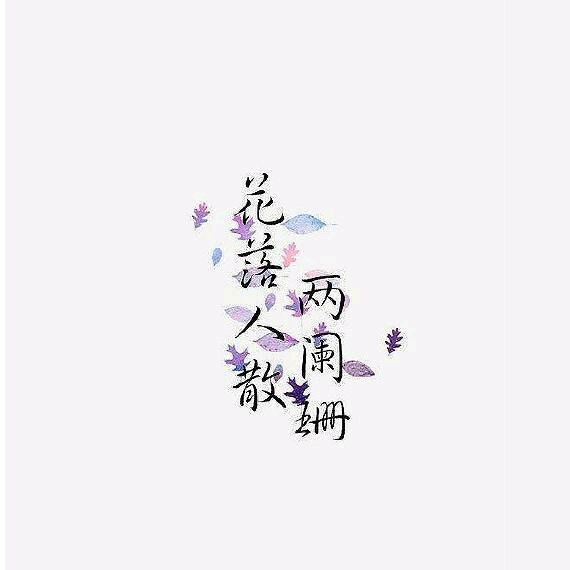 花落人散
两阑珊